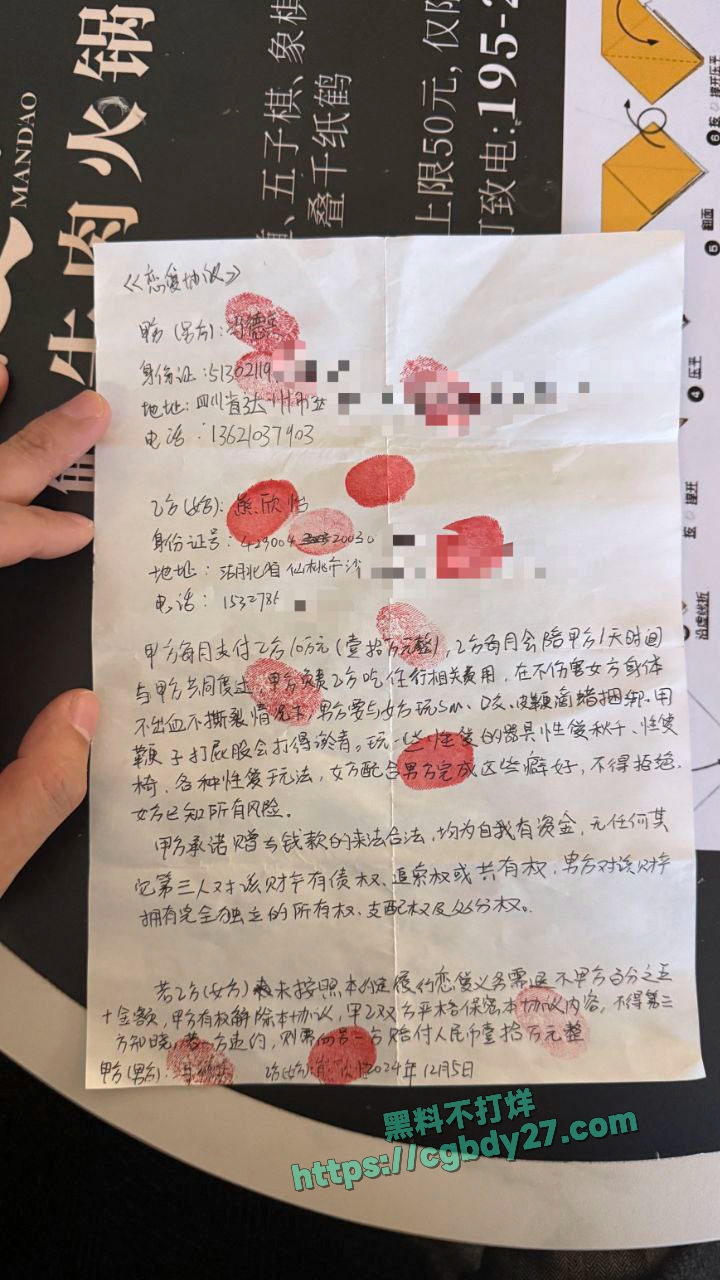 MANDAO
牛肉火锅
、五子棋、象棋
叠千纸鹤
上限50元，仅限
致电:
《恋爱协议》
甲方(男方):
身份证:
地址:
电话:
乙方(女方):
身份证号:
地址:
电话:
甲方每月支付乙方10万元(壹拾万元整)，乙方每月会陪甲方1天时间
与甲方共同度过，甲方负责乙方吃住行相关费用，在不伤害女方身体
不出血不撕裂情况下，男方要与女方玩sm、口交、皮鞭滴蜡捆绑、用
鞭子打屁股会打得淤青。玩一些性爱的器具性爱秋千、性爱
椅、各种性爱玩法，女方配合男方完成这些癖好，不得拒绝.
女方已知所有风险。
甲方承诺赠与钱款的来法合法，均为自我有资金，无任何其
它第三人对该财产有债权、追索权或共有权，男方对该财产
拥有完全独立的所有权、支配权及处分权。
若乙方(女方)未按照本约定履行恋爱义务需退还甲方百分之五
十金额，甲方有权解除本协议，甲乙双方严格保密本协议内容，不得第三
方知晓，若一方违约，则需向另一方赔付人民币壹拾万元整
甲方(男方): 乙方(女方): 2024年12月5日
黑料不打烊
https://cgbdy27.com
④ 压平
⑤ 翻面